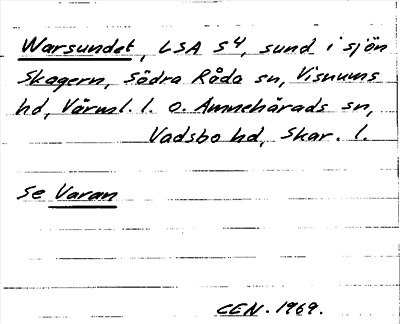 Warsundet, LSA S4, sund i sjön
Skagern, Södra Råda sn, Visnums
hd, Värml. l. o. Amnehärads sn,
Vadsbo hd, Skar. l.
se Varan
CEN. 1969.